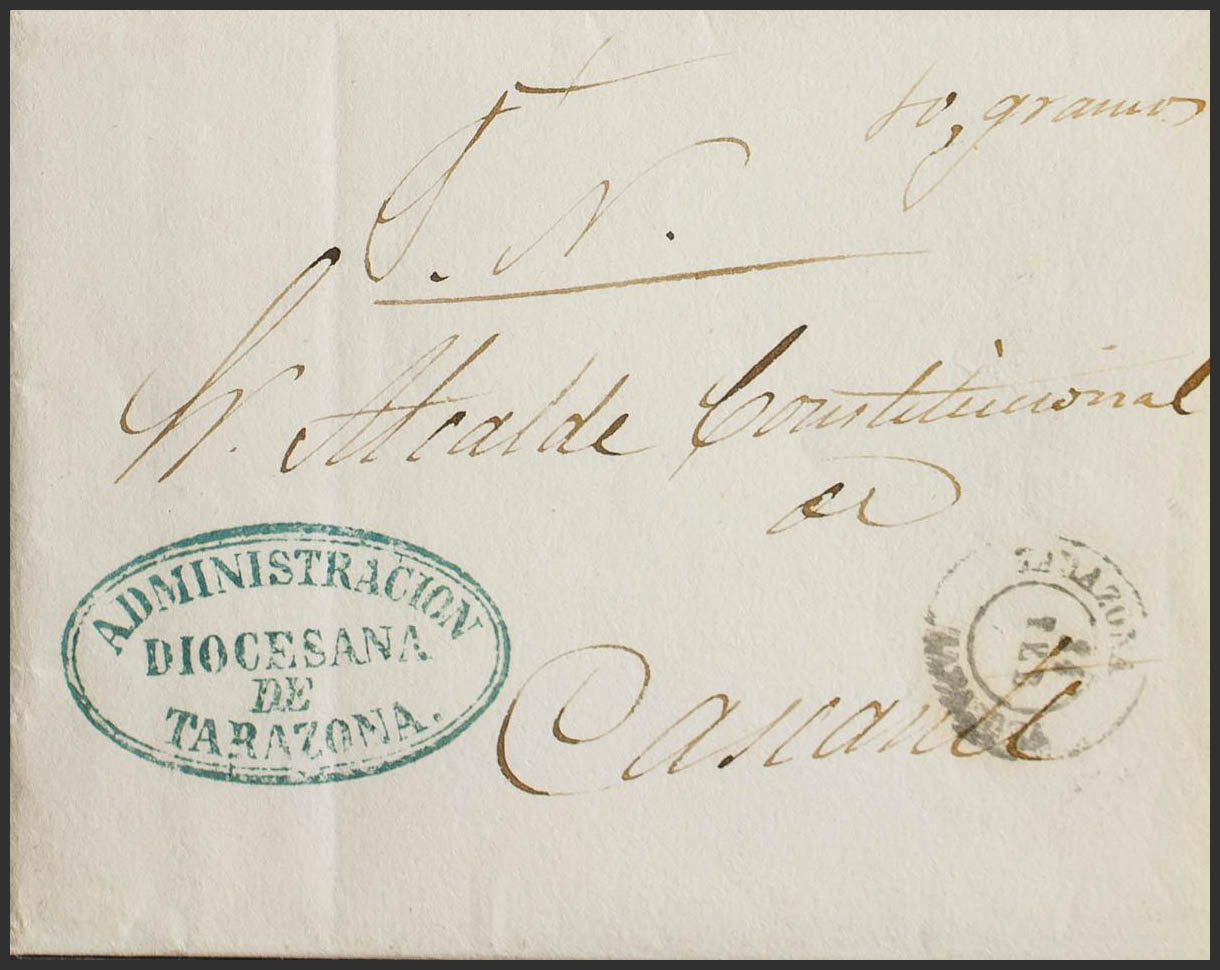 gramos
S. N.
Sr. Alcalde Constitucional
de
Cascante
ADMINISTRACION
DIOCESANA
DE
TARAZONA.
TARAZONA